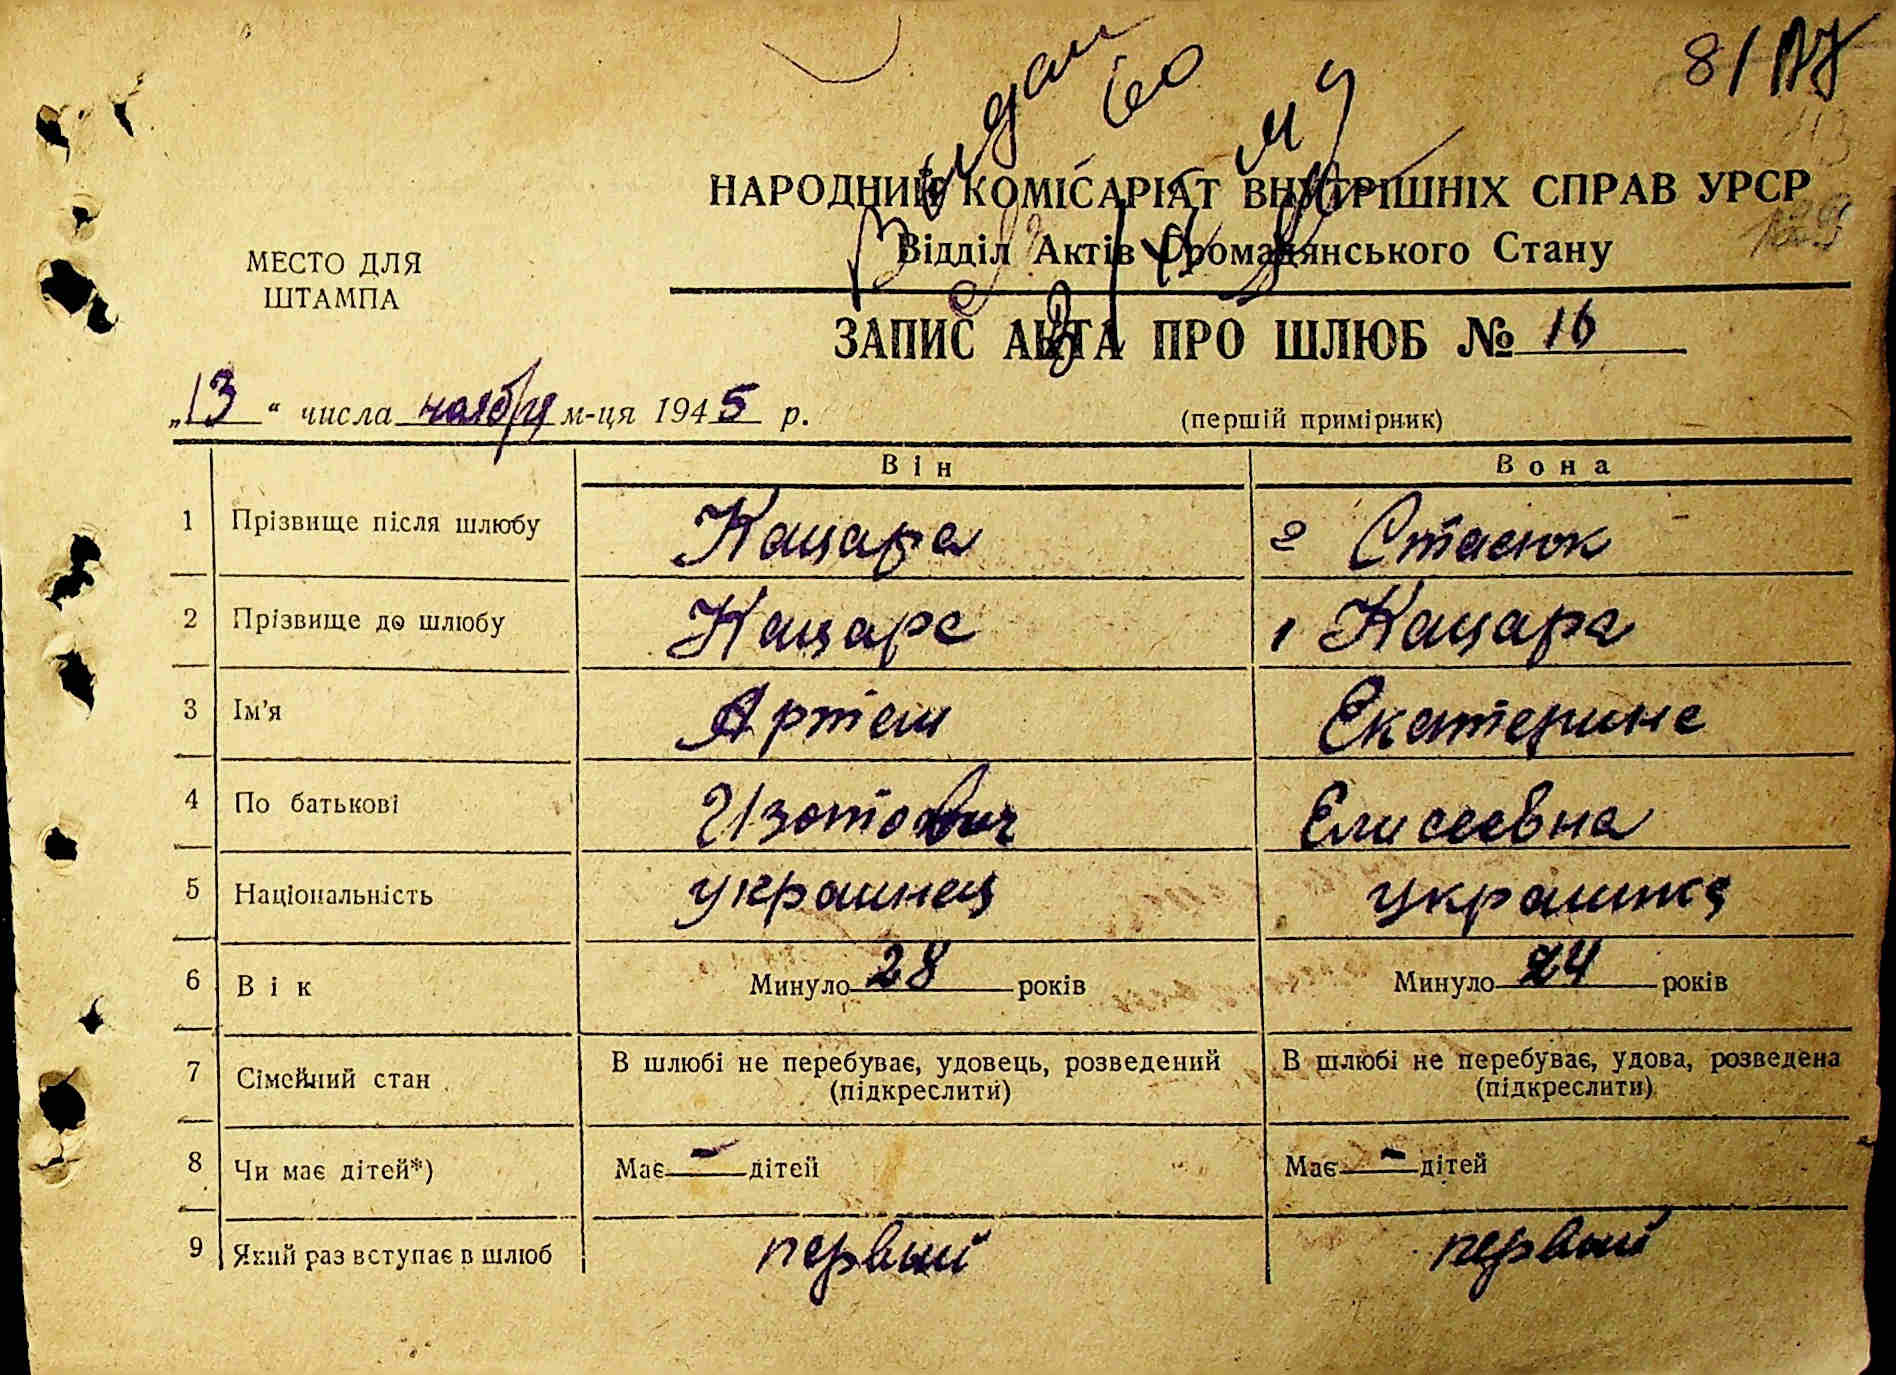 8/
НАРОДНИЙ КОМІСАРІАТ ВНУТРІШНІХ СПРАВ УРСР
Відділ Актів Громадянського Стану
МЕСТО ДЛЯ
ШТАМПА
ЗАПИС АКТА ПРО ШЛЮБ № 16
„13“ числа ноября м-ця 1945 р.
(першій примірник)
Він Вона
1 Прізвище після шлюбу Кацара 2 Стасюк
2 Прізвище до шлюбу Кацара 1 Кацара
3 Ім'я Артем Екатерина
4 По батькові Изотович Елисеевна
5 Національність украинец украинка
6 Вік Минуло 28 років Минуло 24 років
7 Сімейний стан В шлюбі не перебуває, удовець, розведений В шлюбі не перебуває, удова, розведена
(підкреслити) (підкреслити)
8 Чи має дітей*) Має — дітей Має — дітей
9 Який раз вступає в шлюб первый первый